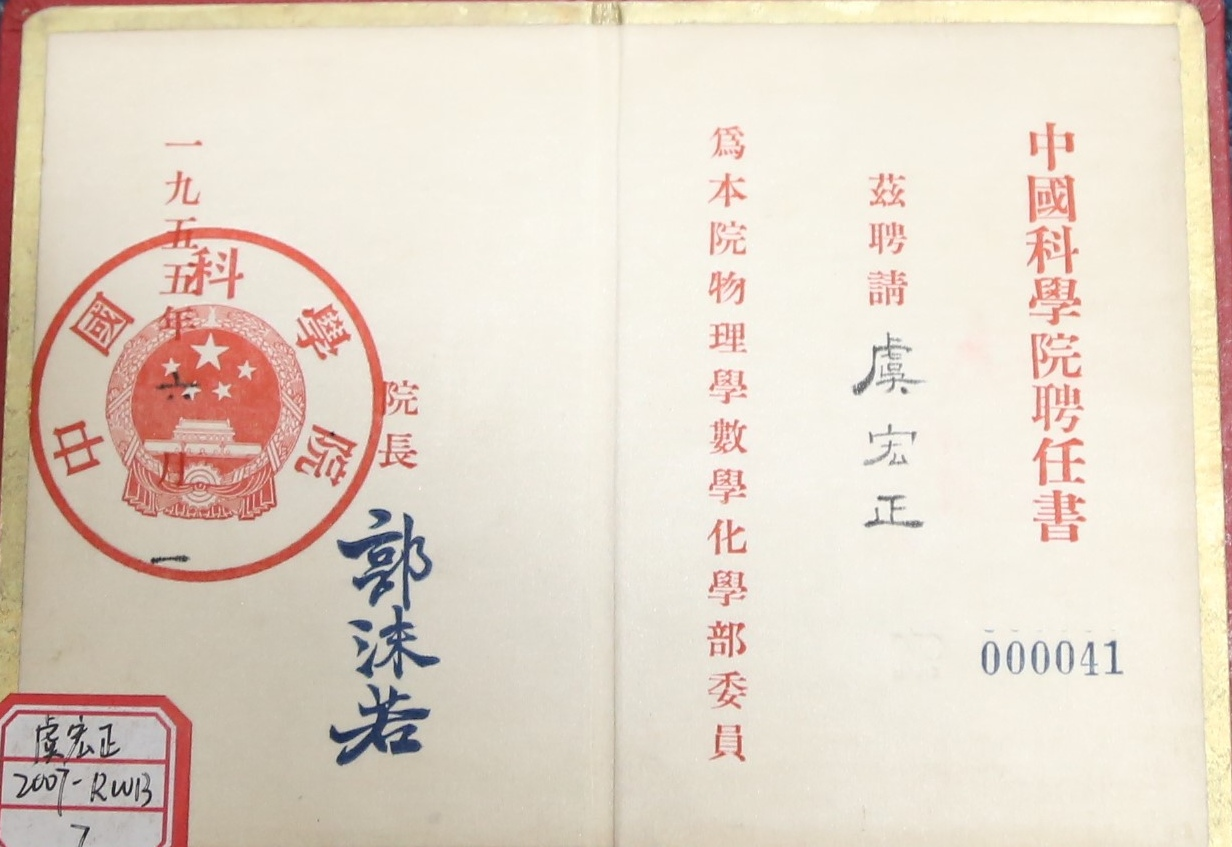 中國科學院聘任書
000041
茲聘請 虞宏正
爲本院物理學數學化學部委員
院長 郭沫若
一九五五年六月一
中國科學院
虞宏正
2007-RWB
7